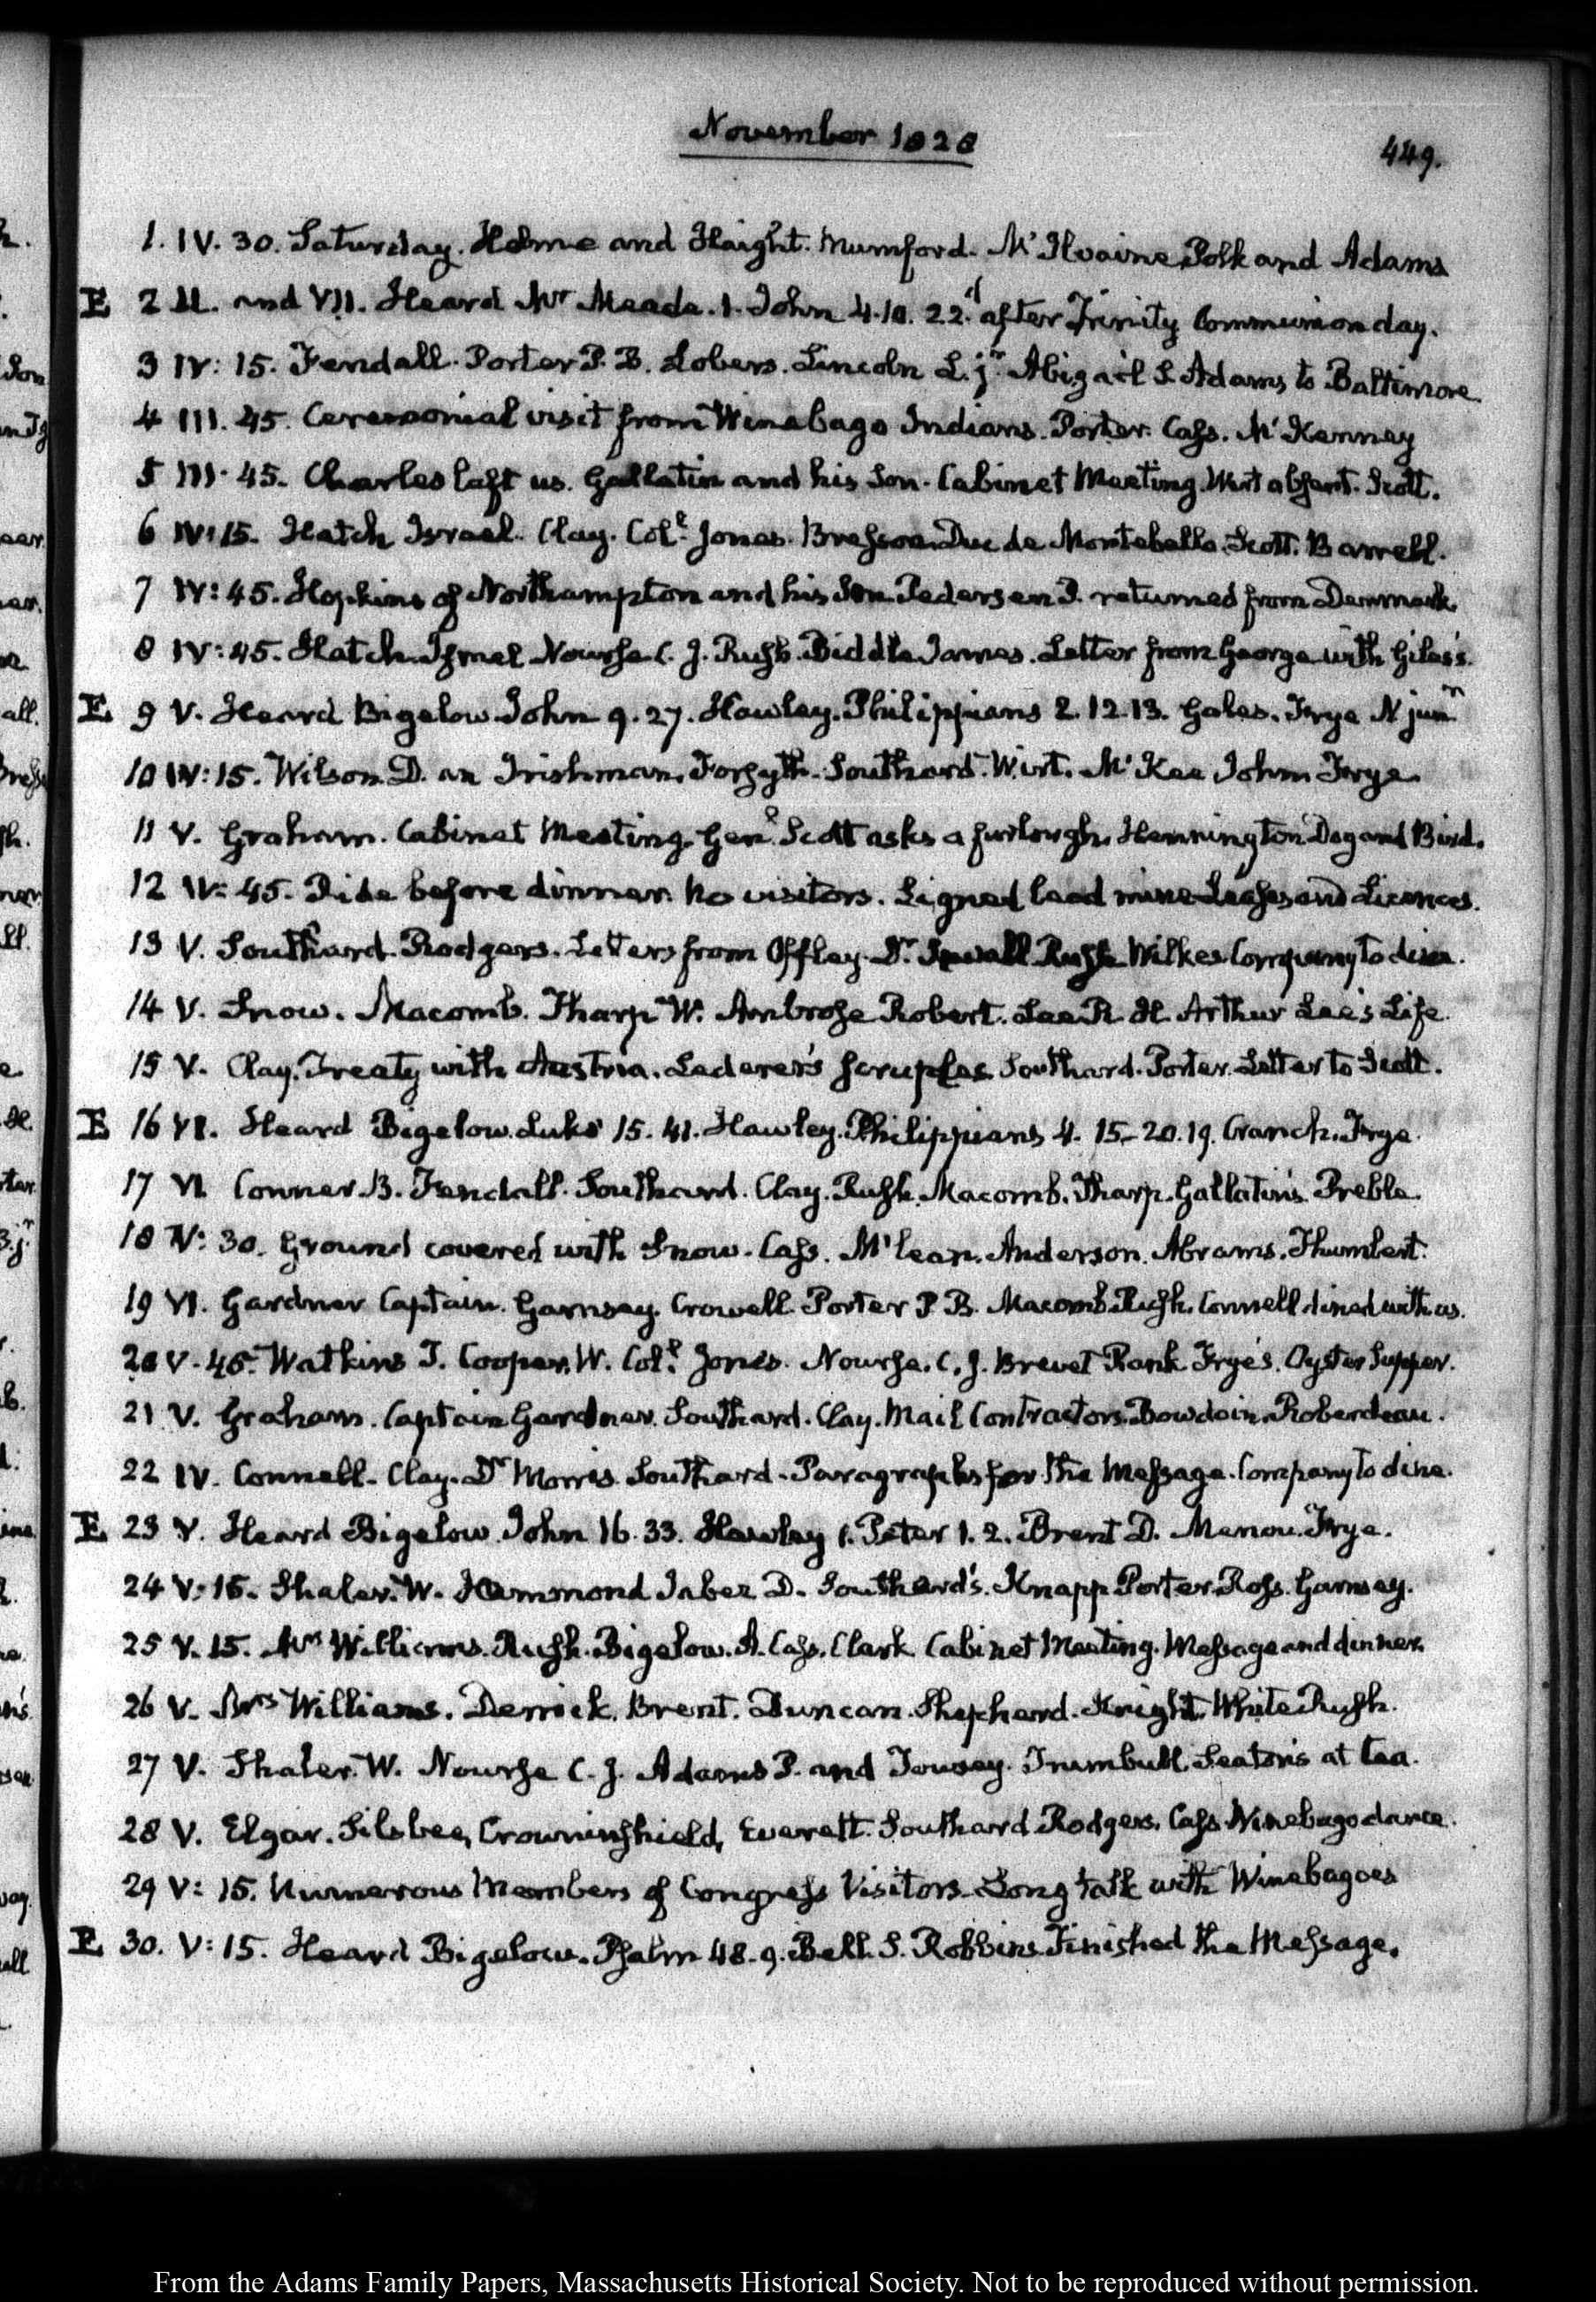 November 1828
449.
1. IV. 30. Saturday. Holme and Haight. Mumford. McIlvaine Polk and Adams
E 2 II. and VII. Heard Mr Meade. 1. John 4.10. 22.d after Trinity Communion day.
3 IV: 15. Fendall. Porter P. B. Lobers. Lincoln L. jr. Abigail S. Adams to Baltimore
4 III. 45. Ceremonial visit from Winebago Indians. Porter. Cass. McKenney
5 III. 45. Charles left us. Gallatin and his Son. Cabinet Meeting. Wirt absent. Scott.
6 IV: 15. Hatch Israel. Clay. Coll. Jones. Bresson. Duc de Montebello. Scott. Barrell.
7 IV: 45. Hopkins of Northampton and his Son. Pedersen P. returned from Denmark.
8 IV: 45. Hatch. Nourse C. J. Rush. Biddle James. Letter from George with Giles's.
E 9 V. Heard Bigelow John 9. 27. Hawley. Philippians 2. 12.13. Gales. Frye N junr
10 IV: 15. Wilson D. an Irishman. Forsyth. Southard. Wirt. McKee John Frye.
11 V. Graham. Cabinet Meeting. Genl. Scott asks a furlough. Hennington Dog and Bird.
12 IV: 45. Ride before dinner. No visitors. Signed lead mine Leases and Licences.
13 V. Southard. Rodgers. Letters from Offley. Dr. Sewall Rush Wilkes. Company to dine.
14 V. Snow. Macomb. Tharp W. Ambrose Robert. Lee R H. Arthur Lee's Life.
15 V. Clay. Treaty with Austria. Lederer's scruples. Southard. Porter. Letter to Scott.
E 16 VI. Heard Bigelow. Luke 15. 41. Hawley. Philippians 4. 15-20.19. Cranch. Frye.
17 VI Conner B. Fendall. Southard. Clay. Rush. Macomb. Tharp. Gallatin's Preble.
18 V: 30. Ground covered with Snow. Cass. McLean. Anderson. Abrams. Thumbert.
19 VI. Gardner Captain. Garnsey. Crowell. Porter P. B. Macomb. Rush. Connell dined with us.
20 V. 45. Watkins T. Cooper. W. Coll. Jones. Nourse. C. J. Brevet Rank Frye's. Oyster Supper.
21 V. Graham. Captain Gardner. Southard. Clay. Mail Contractors. Bowdoin. Roberdeau.
22 IV. Connell. Clay. Dr Morris. Southard. Paragraphs for the Message. Company to dine.
E 23 V. Heard Bigelow. John 16. 33. Hawley 1. Peter 1. 2. Brent D. Menou. Frye.
24 V: 15. Shaler. W. Hammond Jabez D. Southard's. Knapp. Porter. Ross. Garnsey.
25 V. 15. Mrs Williams. Rush. Bigelow. A. Cass. Clark Cabinet Meeting. Message and dinner.
26 V. Mrs Williams. Derrick. Brent. Duncan. Shepherd. Knight. White Rush.
27 V. Shaler. W. Nourse C. J. Adams P. and Tousey. Trumbull. Seaton's at tea.
28 V. Elgar. Silsbee, Crowninshield, Everett. Southard Rodgers. Cass. Winebago dance.
29 V: 15. Numerous Members of Congress Visitors. Long talk with Winebagoes
E 30. V: 15. Heard Bigelow. Psalm 48. 9. Bell. S. Robbins. Finished the Message.
From the Adams Family Papers, Massachusetts Historical Society. Not to be reproduced without permission.